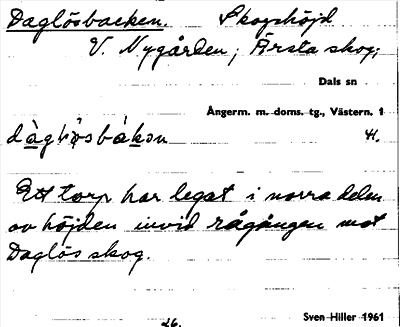 Daglösbacken. Skogshöjd
V. Nygården, Ärsta skog;
Dals sn
Ångerm. m. doms. tg., Västern. 1
41.
Ett torp har legat i norra delen
av höjden invid rågången mot
Daglös skog.
26. Sven Hiller 1961